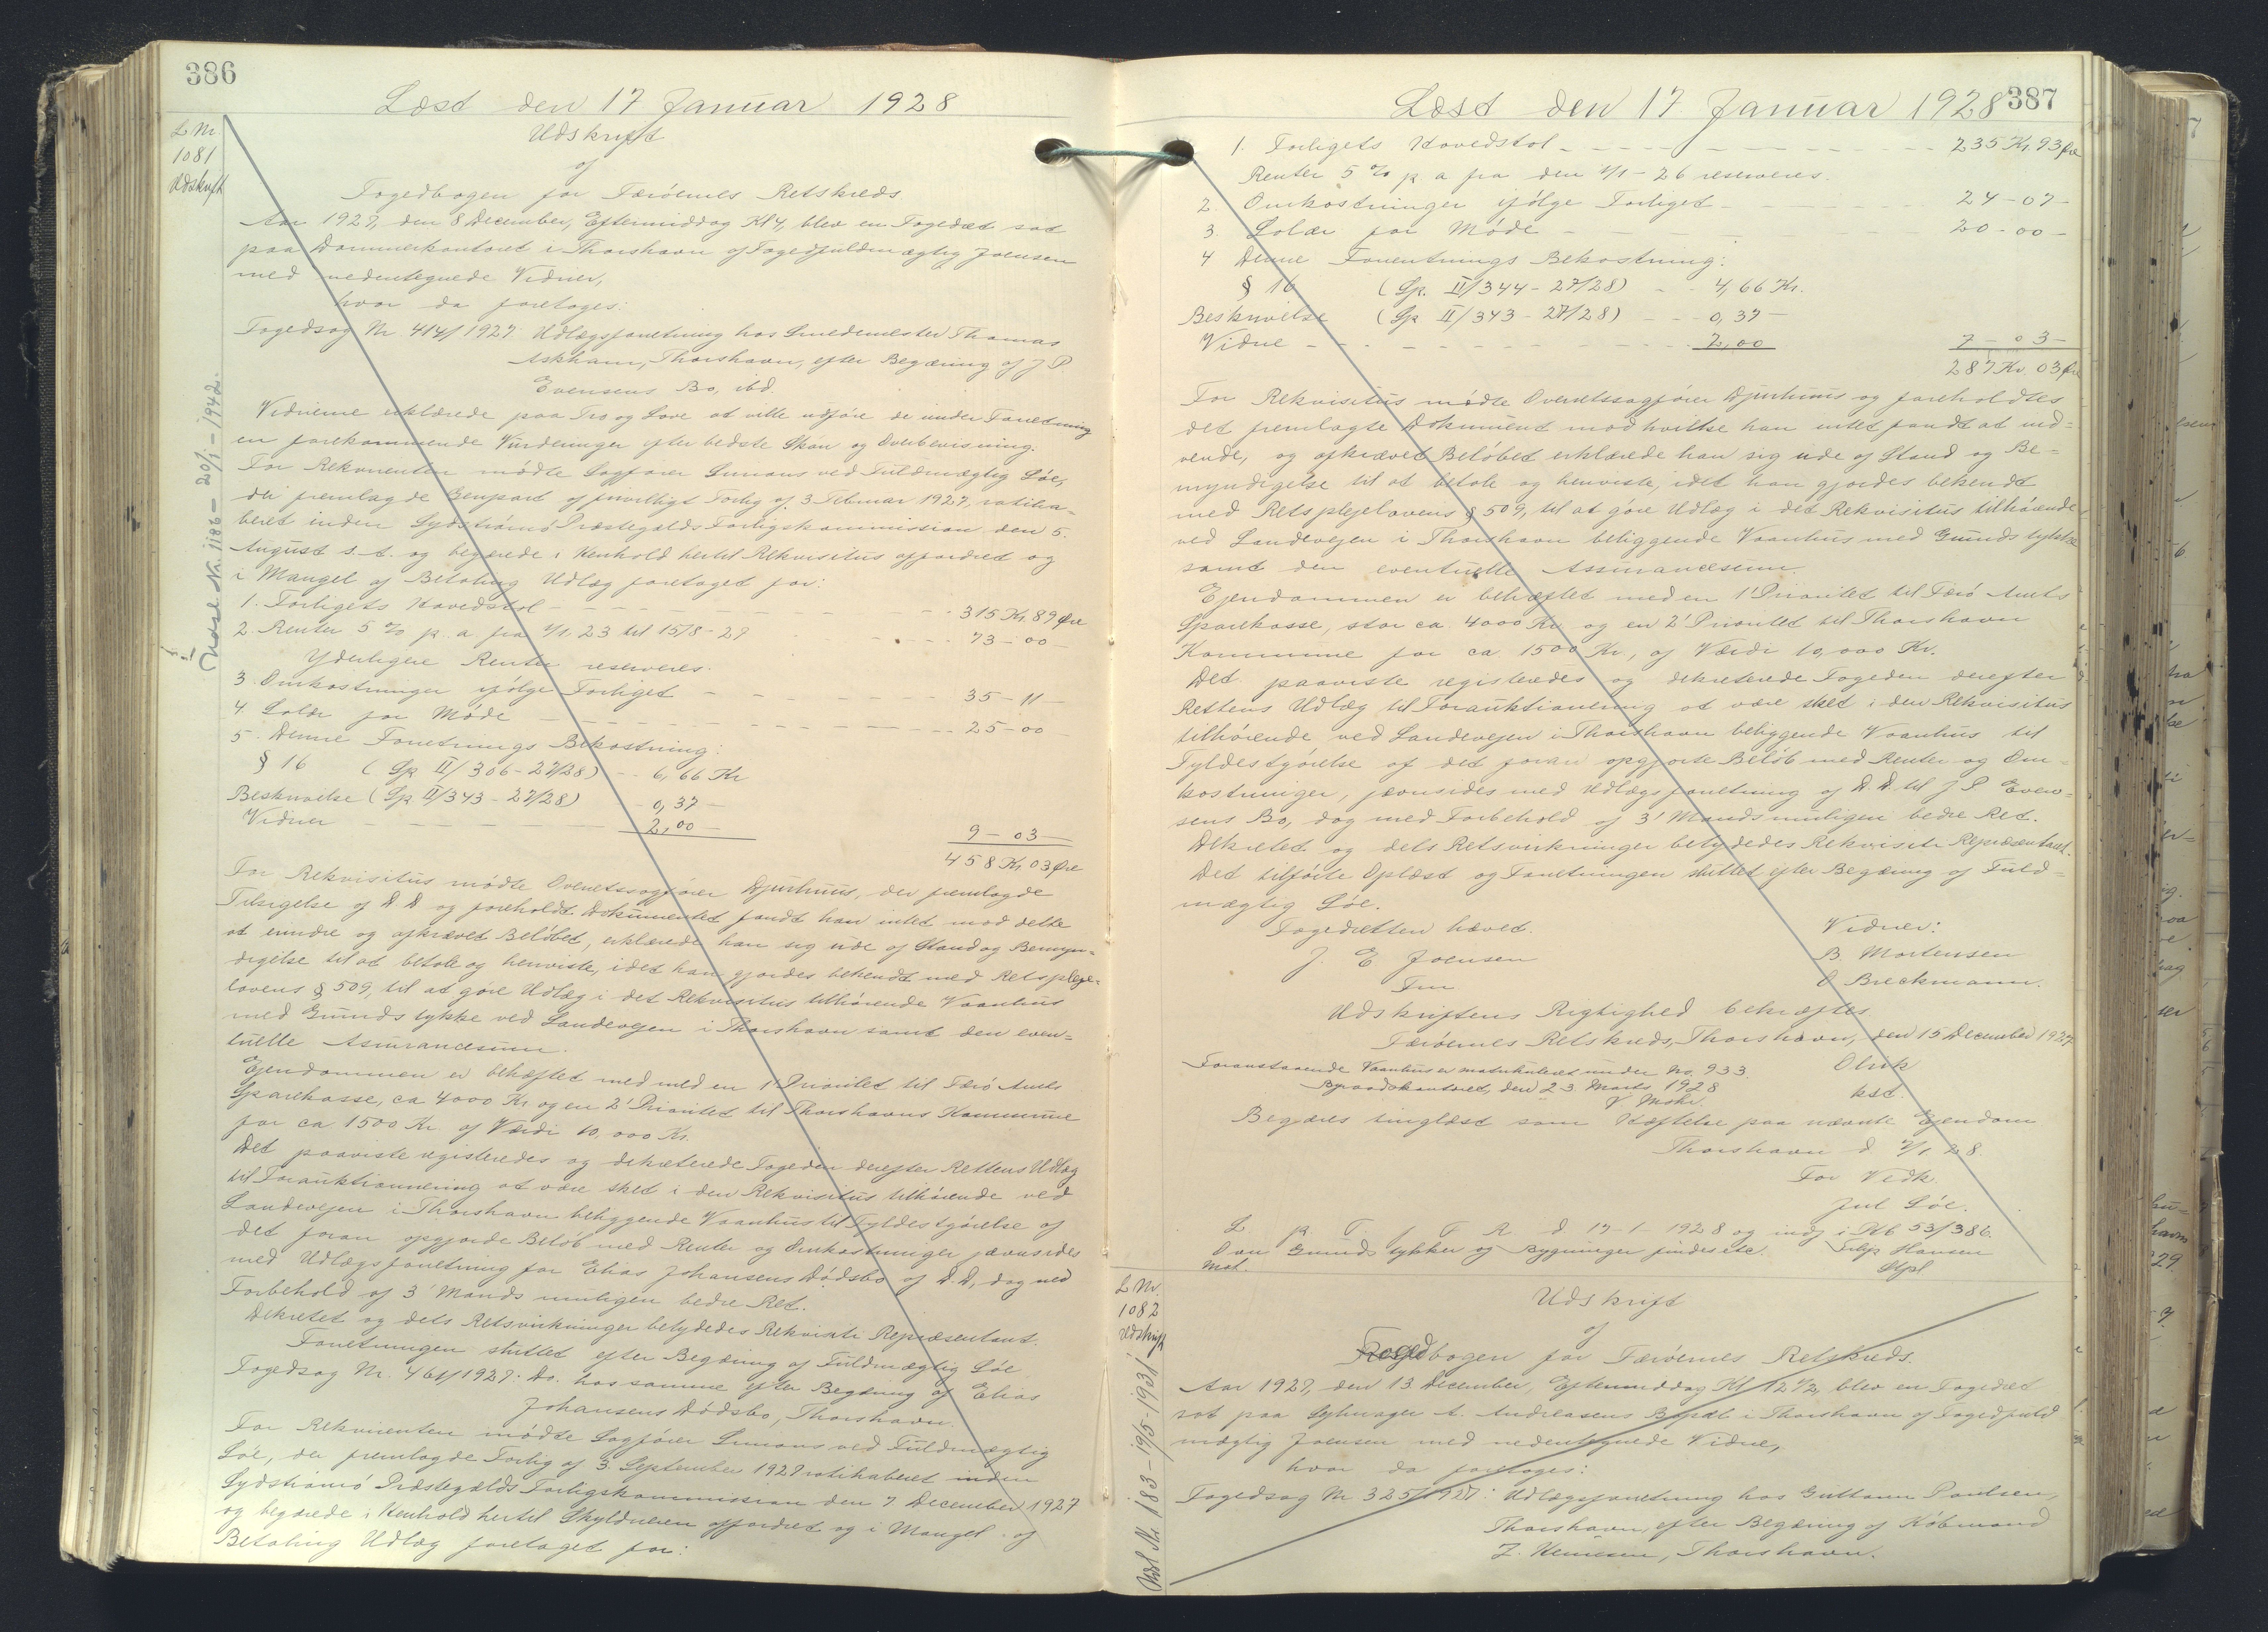 386
Læst den 17 Januar 1928
L Nr
1081
Udskrift
Udskrift
af
Fogedbogen for Færöernes Retskreds
Aar 1927, den 8 December, Eftermiddag Kl 4, blev en Fogedret sat
paa Dommerkontoret i Thorshavn af Fogedfuldmægtig Joensen
med nedentegnede Vidner,
hvor da foretoges:
Fogedsag Nr 414/1927: Udlægsforretning hos Smedemester Thomas
Askham, Thorshavn, efter Begæring af J P
Evensens Bo, ibd.
Vidnerne erklærede paa Tro og Love at ville udføre de under Forretning
en forekommende Vurderinger efter bedste Skøn og Overbevisning.
For Rekvirenten mødte Sagfører Simons ved Fuldmægtig Lóe,
der fremlagde Genpart af frivilligt Forlig af 3 Februar 1927, ratiha-
beret inden Sydstrømø Præstegælds Forligskommission den 5.
August s. A. og begærede i Henhold hertil Rekvisitus opfordret og
i Mangel af Betaling Udlæg foretaget for:
1. Forligets Hovedstol - 315 Kr. 89 Øre
2. Renter 5 % p. a fra 1/1 23 til 15/8-27 73-00-
Yderligere Renter reserveres.
3. Omkostninger ifölge Forliget - 35-11-
4. Salær for Møde - 25-00-
5. Denne Forretnings Bekostning:
§ 16 (Gp II/306-27/28) - 6,66 Kr
Beskrivelse (Gp II/343-27/28) - 0,37 -
Vidner - 2,00 - 9-03-
458 Kr 03 Øre
For Rekvisitus mødte Overretssagfører Djurhuus, der fremlagde
Tilsigelse af D. D og foreholdt Dokumentet fandt han intet mod dette
at erindre og afkrævet Beløbet, erklærede han sig ude af Stand og Bemyn-
digelse til at betale og henviste, idet han gjordes bekendt med Retspleje-
lovens § 509, til at göre Udlæg i det Rekvisitus tilhørende Vaanhus
med Grundstykke ved Landevejen i Thorshavn samt den even-
tuelle Assurancesum.
Ejendommen er behæftet med med en 1' Prioritet til Færö Amts
Sparekasse, ca 4000 Kr og en 2' Prioritet til Thorshavns Kommune
for ca 1500 Kr. af Værdi 10,000 Kr.
Det paaviste registeredes og dekreterede Fogeden derefter Rettens Udlæg
til Forauktionering at være sket i den Rekvisitus tilhørende ved
Landevejen i Thorshavn beliggende Vaanhus til Fyldestgørelse af
det foran opgjorde Beløb med Renter og Omkostninger jævnsides
med Udlægsforretning for Elias Johansens Dödsbo af D. D, dog med
Forbehold af 3' Mands muligen bedre Ret.
Dekretet og dets Retsvirkninger betydedes Rekvisiti Repræsentant.
Forretningen sluttet efter Begæring af Fuldmægtig Lóe
Fogedsag Nr. 461/1927: Do. hos samme efter Begæring af Elias
Johansens Dödsbo, Thorshavn.
For Rekvirenten mødte Sagfører Simons ved Fuldmægtig
Lóe, der fremlagde Forlig af 3. September 1927 ratihaberet inden
Sydströmø Præstegælds Forligskommission den 7. December 1927
og begærede i Henhold hertil Skyldneren opfordret og i Mangel af
Betaling Udlæg foretaget for:
Udsl Nr. 1186 - 20/1 - 1942.
387
Læst den 17 Januar 1928
1. Forligets Hovedstol - 235 Kr 93 Øre
Renter 5 % p. a fra den 1/1-26 reserveres.
2. Omkostninger ifölge Forliget - 24-07-
3. Salær for Møde - 20-00-
4 Denne Forretnings Bekostning:
§ 16 (Gp. II/344-27/28) - 4,66 Kr.
Beskrivelse (Gp II/343-27/28) - 0,37 -
Vidne - 2,00 7-03-
287 Kr. 03 Øre
For Rekvisitus mødte Overretssagfører Djurhuus og foreholdtes
det fremlagte Dokument mod hvilke han intet fandt at ind-
vende, og afkrævet Beløbet erklærede han sig ude af Stand og Be-
myndigelse til at betale og henviste, idet han gjordes bekendt
med Retsplejelovens § 509, til at göre Udlæg i det Rekvisitus tilhørende
ved Landevejen i Thorshavn beliggende Vaanhus med Grundstykke
samt den eventuelle Assurancesum.
Ejendommen er behæftet med en 1' Prioritet til Færö Amts
Sparekasse, stor ca. 4000 Kr og en 2' Prioritet til Thorshavn
Kommune for ca 1500 Kr, af Værdi 10,000 Kr.
Det paaviste registeredes og dekreterede Fogeden derefter
Rettens Udlæg til Forauktionering at være sket i den Rekvisitus
tilhørende ved Landevejen i Thorshavn beliggende Vaanhus til
Fyldestgörelse af det foran opgjorte Beløb med Renter og Om-
kostninger, jævnsides med Udlægsforretning af D. D. til J P Even-
sens Bo, dog med Forbehold af 3' Mands muligen bedre Ret.
Dekretet og dets Retsvirkninger betydedes Rekvisiti Repræsentant.
Det tilförte Oplæst og Forretningen sluttet efter Begæring af Fuld-
mægtig Lóe.
Fogedretten hævet.
J. E Joensen
Fm
Vidner:
B Mortensen
O Breckmann.
Udskriftens Rigtighed bekræftes
Færöernes Retskreds, Thorshavn, den 15 December 1927
Foranstaaende Vaanhus er matrikuleret under No. 933
Byraadskontoret, den 23 Marts 1928
kst.
Begæres tinglæst som Hæftelse paa nævnte Ejendom
Thorshavn d 2/1 28.
For Vedk.
Jul Lóe.
L. p T. f F R d 17-1-1928 og indf i Pb 53/386.
Grundstykker og Bygninger findes ikke.
Filip Hansen
L Nr.
1082
Udskrift
Udskrift
af
Fogedbogen for Færöernes Retskreds.
Aar 1927, den 13 December, Eftermiddag Kl 12 1/2, blev en Fogedret
sat paa Sykvager A. Andreasens Bopæl i Thorshavn af Fogedfuld
mægtig Joensen med nedentegnede Vidne,
hvor da foretoges:
Fogedsag Nr 325/1927: Udlægsforretning hos Guttorm Poulsen,
Thorshavn, efter Begæring af Köbmand
Thorshavn.
Udsl Nr 183 - 19/5-1931